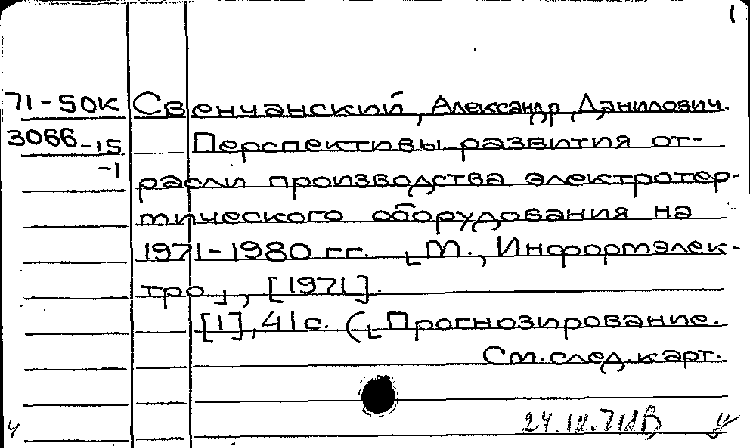 1
71-50к Свенчанский, Александр Данилович.
3066-15 Перспективы развития от-
-1
расли производства электротер-
мического оборудования на
1971-1980 гг. [М., Информэлек-
тро], [1971].
[1], 41 с. ([Прогнозирование.
См. след. карт.